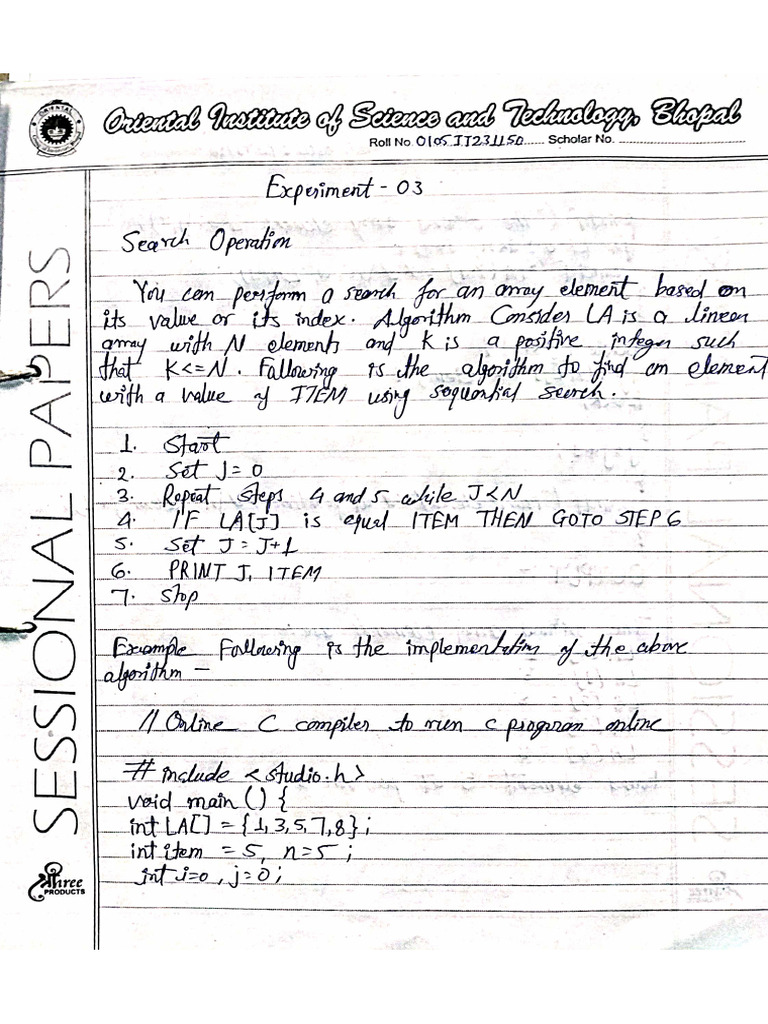 Oriental Institute of Science and Technology, Bhopal
Roll No. 0105IT231150 Scholar No.
SESSIONAL PAPERS
Experiment - 03
Search Operation
You can perform a search for an array element based on
its value or its index. Algorithm Consider LA is a linear
array with N elements and K is a positive integer such
that K<=N. Following is the algorithm to find an element
with a value of ITEM using sequential search.
1. Start
2. Set J=0
3. Repeat steps 4 and 5 while J<N
4. IF LA[J] is equal ITEM THEN GOTO STEP 6
5. Set J=J+1
6. PRINT J, ITEM
7. Stop
Example Following is the implementation of the above
algorithm —
// Online C compiler to run c program online
# include <studio.h>
void main () {
int LA[] = {1,3,5,7,8};
int item = 5, n=5 ;
int i=0, j=0;
Three
PRODUCTS